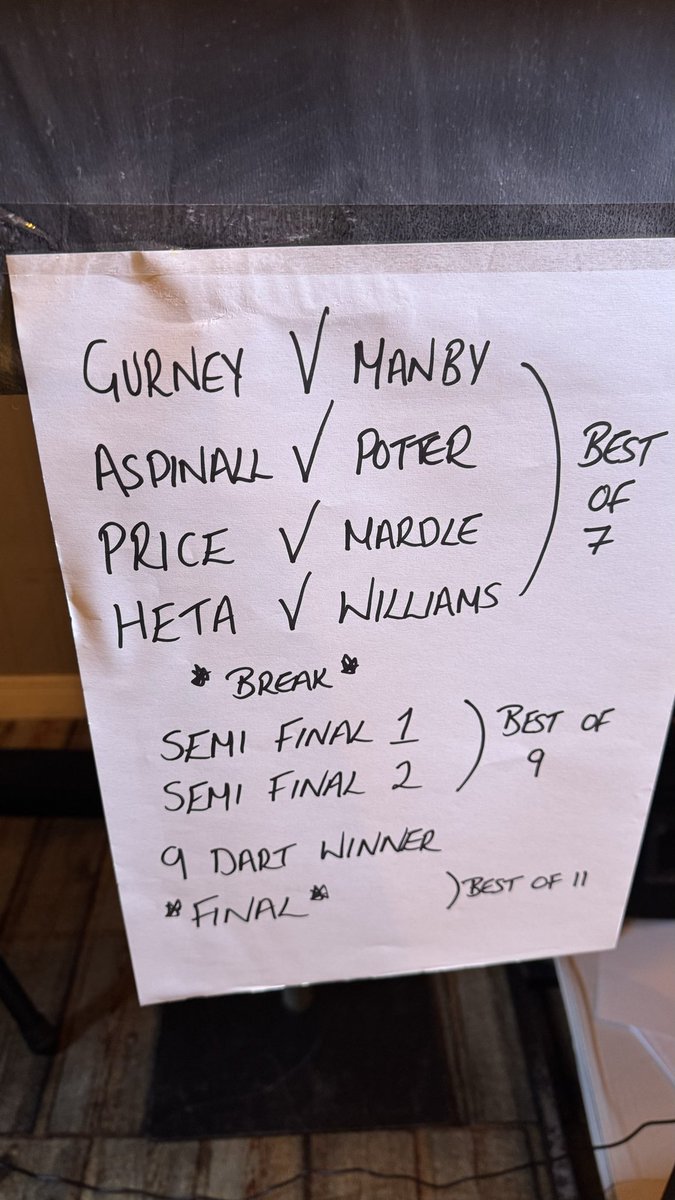 GURNEY V MANBY
ASPINALL V POTTER
PRICE V MARDLE
HETA V WILLIAMS
BEST
OF
7
* BREAK *
SEMI FINAL 1
SEMI FINAL 2
BEST OF
9
9 DART WINNER
*FINAL*
BEST OF 11